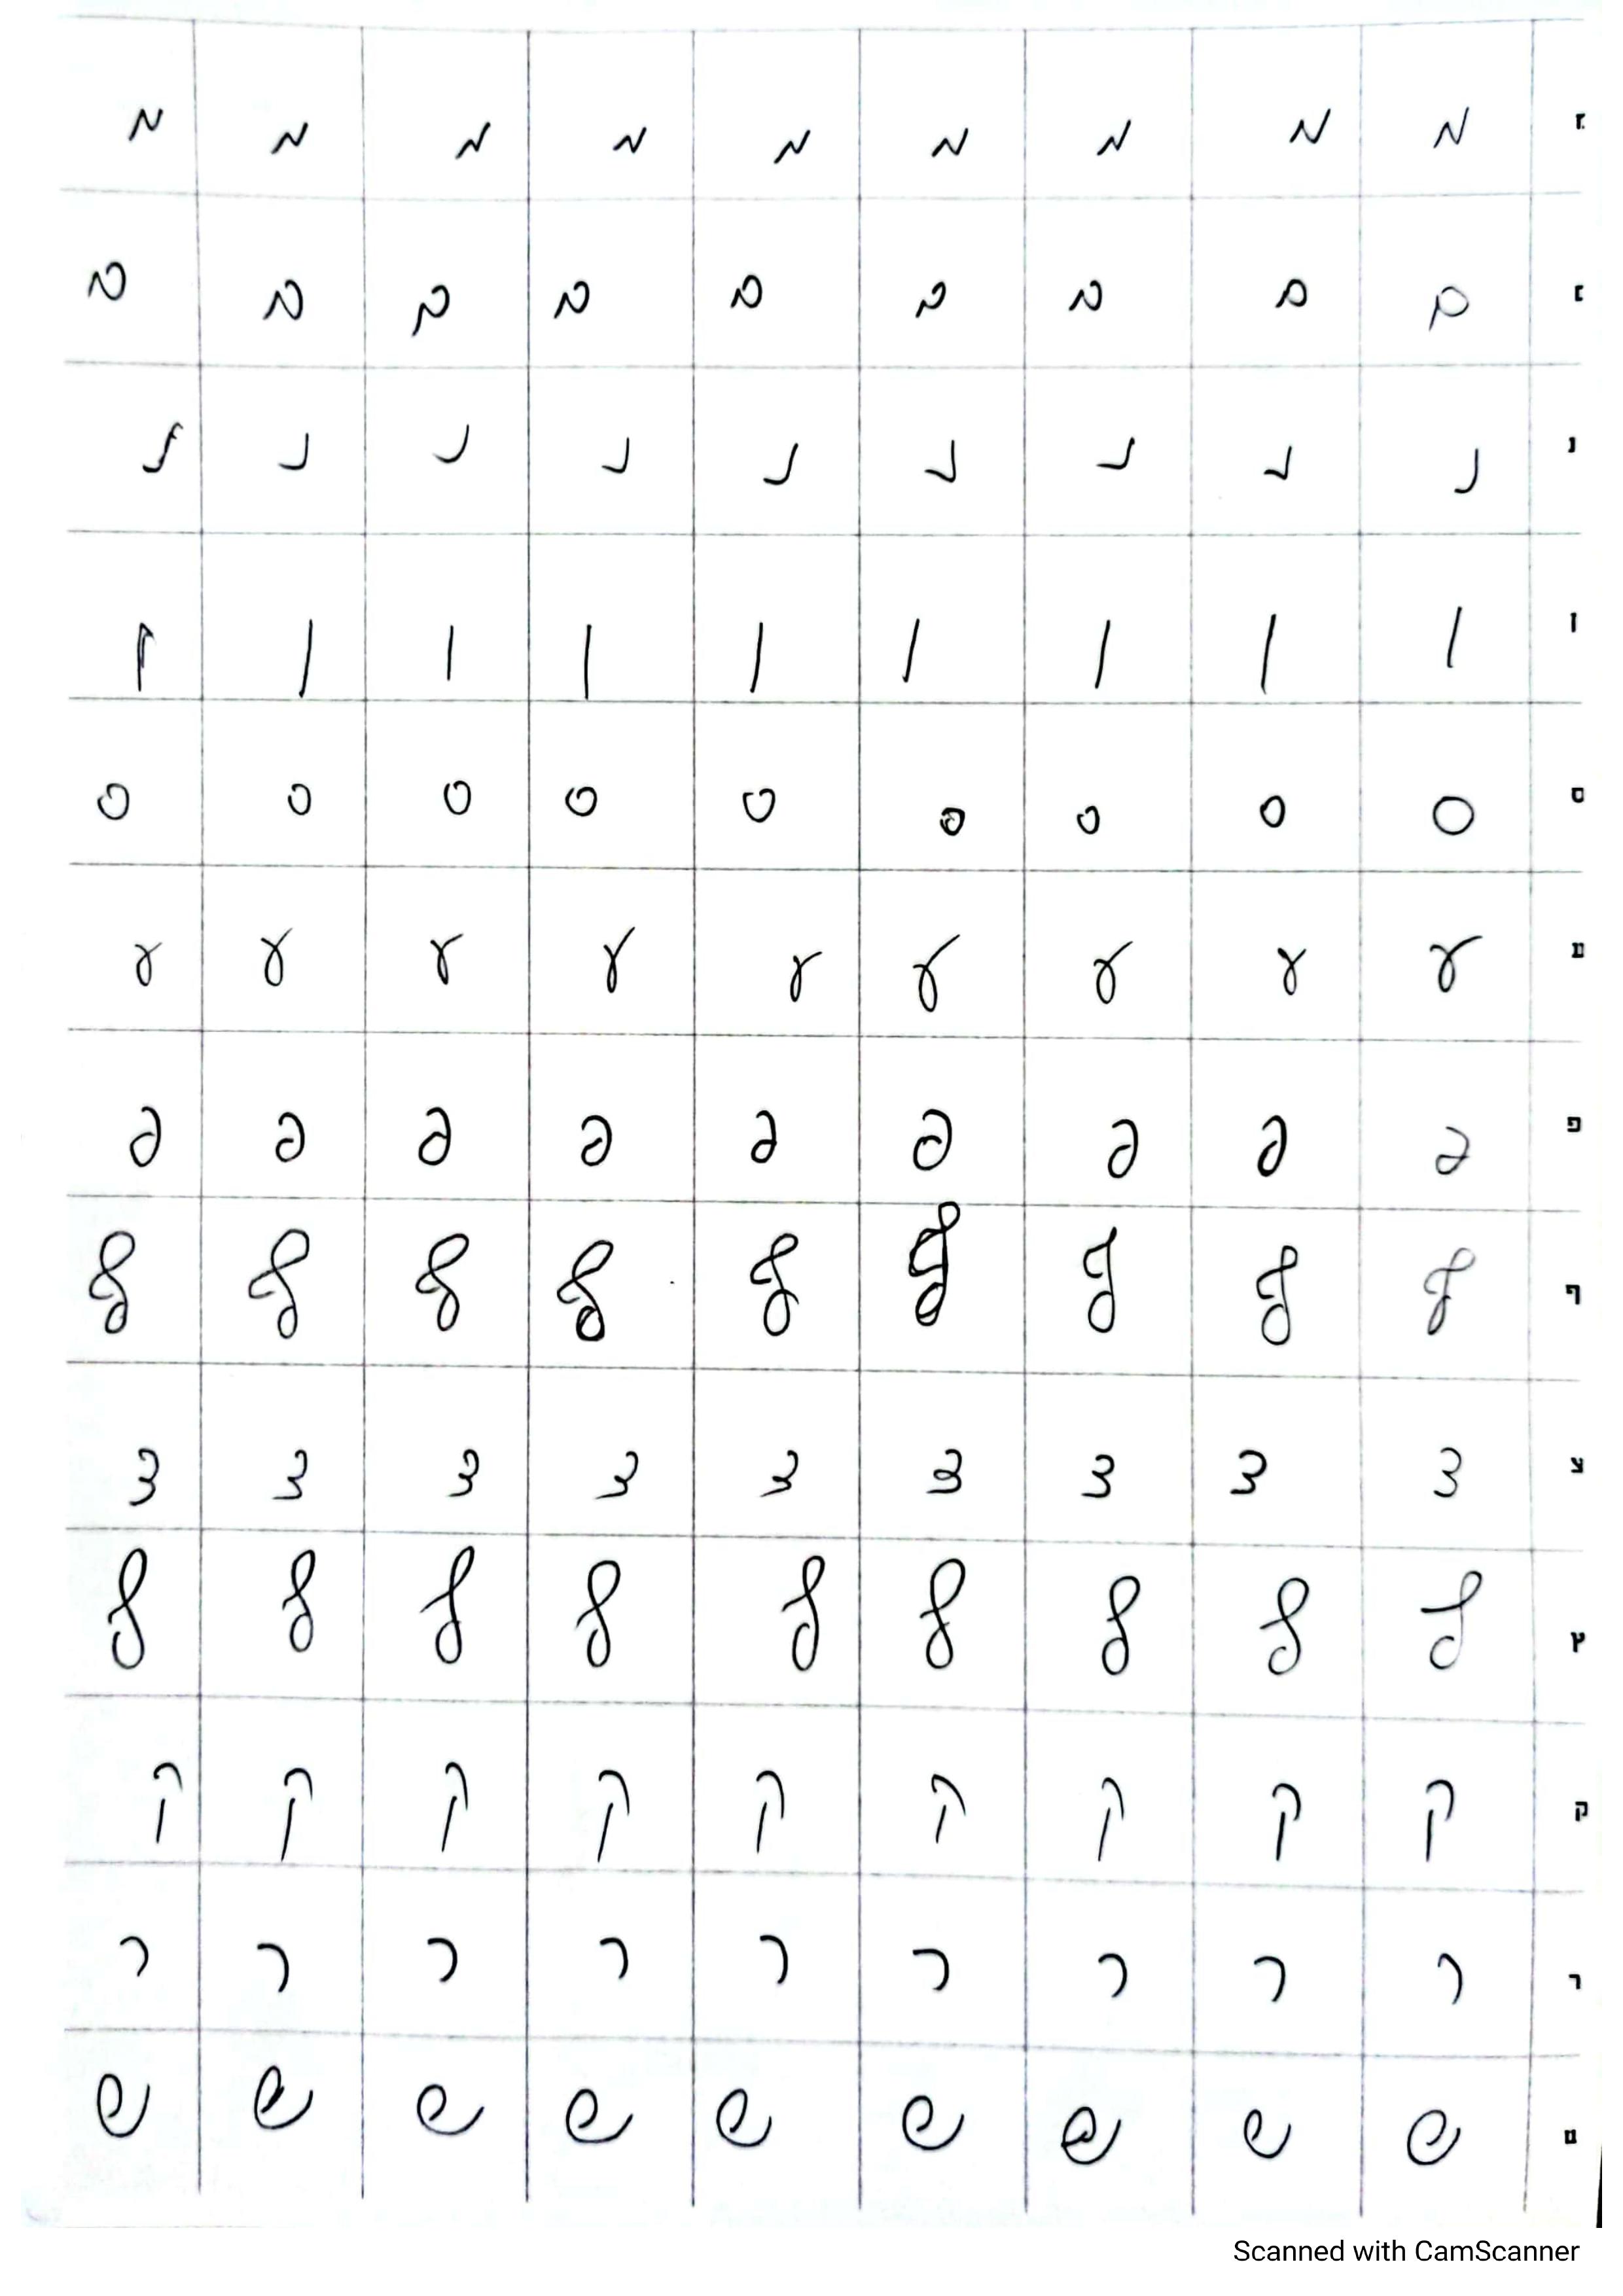 מ מ מ מ מ מ מ מ מ מ
ם ם ם ם ם ם ם ם ם ם
נ נ נ נ נ נ נ נ נ נ
ן ן ן ן ן ן ן ן ן ן
ס ס ס ס ס ס ס ס ס ס
ע ע ע ע ע ע ע ע ע ע
פ פ פ פ פ פ פ פ פ פ
ף ף ף ף ף ף ף ף ף ף
צ צ צ צ צ צ צ צ צ צ
ץ ץ ץ ץ ץ ץ ץ ץ ץ ץ
ק ק ק ק ק ק ק ק ק ק
ר ר ר ר ר ר ר ר ר ר
ש ש ש ש ש ש ש ש ש ש
Scanned with CamScanner